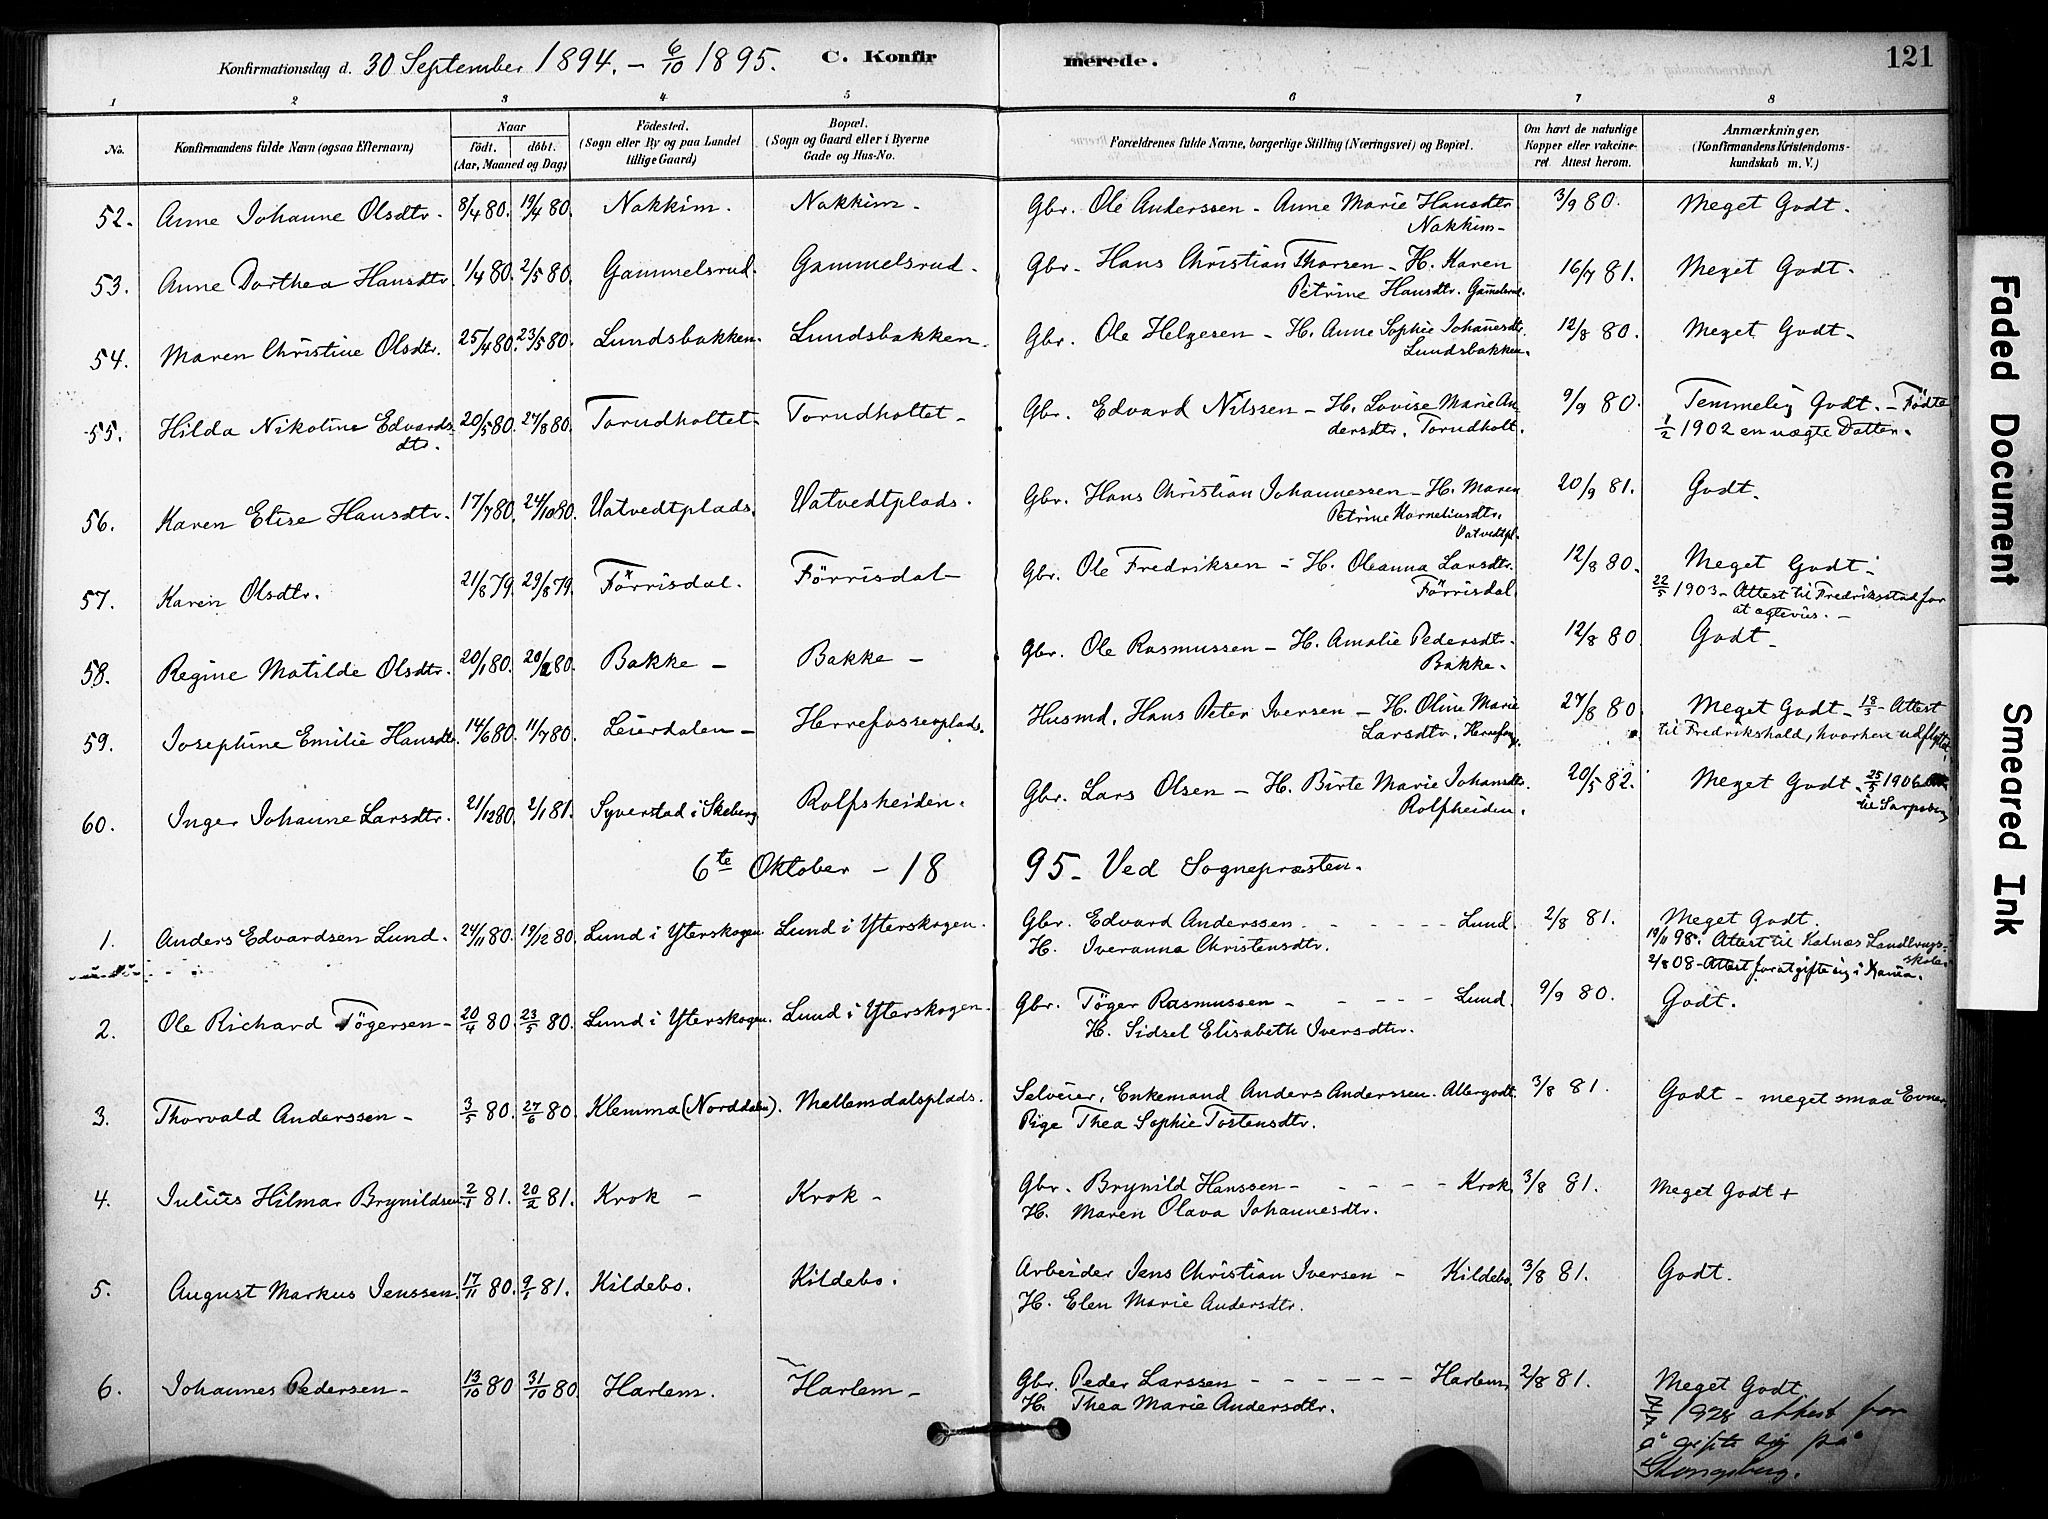 Konfirmationsdag d. 30 September 1894. - 6/10 1895. C. Konfirmerede. 121
1 2 3 4 5 6 7 8
No. Konfirmandens fulde Navn (ogsaa Efternavn) Naar födt. döbt. (Aar, Maaned og Dag) Födested. (Sogn eller By og paa Landet tillige Gaard) Bopæl. (Sogn og Gaard eller i Byerne Gade og Hus-No. Forældrenes fulde Navne, borgerlige Stilling (Næringsvei) og Bopæl. Om havt de naturlige Kopper eller vakcineret. Attest herom. Anmærkninger. (Konfirmandens Kristendomskundskab m. V.)
52. Anne Johanne Olsdtr. 8/4 80. 19/4 80. Nakkim. Nakkim - Gbr. Ole Anderssen - Anne Marie Hansdtr 3/9 80. Meget Godt.
Nakkim -
53. Anne Dorthea Hansdtr. 1/4 80. 2/5 80. Gammelsrud. Gammelsrud. Gbr. Hans Christian Thorsen - H. Karen 16/7 81. Meget Godt.
Petrine Hansdtr. Gam̄elsrud.
54. Maren Christine Olsdtr. 25/4 80. 23/5 80. Lundsbakken. Lundsbakken. Gbr. Ole Helgesen - H. Anne Sophie Johan̄esdtr. 12/8 80. Meget Godt -
Lundsbakken.
55. Hilda Nikoline Edvards- 20/5 80. 27/8 80. Torudholtet - Torudholtet - Gbr. Edvard Nilssen - H. Lovise Marie An- 9/9 80. Temmelig Godt. - Födte
dtr. dersdtr. Torudholt. 1/2 1902 en uægte Datter.
56. Karen Elise Hansdtr. 17/7 80. 24/10 80. Vatvedtplads. Vatvedtplads. Gbr. Hans Christian Johannessen - H. Maren 20/9 81. Godt.
Petrine Korneliusdtr.
Vatvedtpl.
57. Karen Olsdtr. 21/8 79. 29/8 79. Förrisdal. Förrisdal - Gbr. Ole Fredriksen - H. Oleanna Larsdtr. 12/8 80. Meget Godt -
Förrisdal. 22/5 1903 - Attest til Fredriksstad for
at ægtevies. -
58. Regine Matilde Olsdtr. 20/1 80. 20/2 80. Bakke - Bakke - Gbr. Ole Rasmussen - H. Amalie Pedersdtr. 12/8 80. Godt -
Bakke -
59. Josephine Emilie Hansdtr. 14/6 80. 11/7 80. Leierdalen - Herrefossenplads. Husmd. Hans Peter Iversen - H. Oline Marie 27/8 80. Meget Godt - Attest
Larsdtr. til Fredrikshald, hvorhen udflyttet
60. Inger Johanne Larsdtr. 21/12 80. 2/1 81. Syverstad i Skeberg Rolfsheiden. Gbr. Lars Olsen - H. Birte Marie Johansdtr. 20/5 82. Meget Godt. 25/5 1906
Rolfheiden. til Sarpsborg
6te Oktober - 1895 - Ved Sognepræsten.
1. Anders Edvardsen Lund. 24/11 80. 19/12 80. Lund i Yterskogen. Lund i Yterskogen. Gbr. Edvard Anderssen - - - - Lund. 2/8 81. Meget Godt.
H. Iveranna Christensdtr. 19/11 98. Attest til Kalnæs Landbrugs-
skole.
2/8 08 - Attest for at gifte sig i
2. Ole Richard Tögersen - 20/4 80. 23/5 80. Lund i Yterskogen. Lund i Yterskogen - Gbr. Töger Rasmussen - - - - Lund. 9/9 80. Godt.
H. Sidsel Elisabeth Iversdtr.
3. Thorvald Anderssen - 3/5 80. 27/6 80. Klemma (Norddalen). Mellemdalsplads. Selveier, Enkemand Anders Anderssen. Allergodt. 3/8 81. Godt - meget smaa Evner
Pige Thea Sophie Tostensdtr.
4. Julius Hilmar Brynildsen 2/1 81. 20/2 81. Krok - Krok - Gbr. Brynild Hanssen - - - - Krok 3/8 81. Meget Godt +
H. Maren Olava Johannesdtr.
5. August Markus Jenssen. 17/11 80. 9/1 81. Kildebo. Kildebo. Arbeider Jens Christian Iversen - Kildebo 3/8 81. Godt.
H. Elen Marie Andersdtr.
6. Johannes Pedersen - 13/10 80 31/10 80. Harlem. Harlem - Gbr. Peder Larssen - - - - - - Harlem 2/8 81. Meget Godt
H. Thea Marie Andersdtr. 1928 attest for
å gifte sig på
Kongsberg.
Faded Document
Smeared Ink